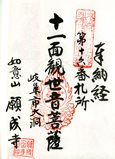 奉納経
第十六番札所
十一面観世音菩薩
岐阜市洞
如意山 願成寺